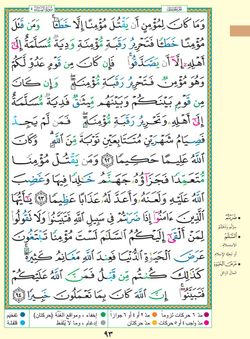 وَمَا كَانَ لِمُؤْمِنٍ أَن يَقْتُلَ مُؤْمِنًا إِلَّا خَطَـًٔا ۚ وَمَن قَتَلَ
مُؤْمِنًا خَطَـًٔا فَتَحْرِيرُ رَقَبَةٍ مُّؤْمِنَةٍ وَدِيَةٌ مُّسَلَّمَةٌ إِلَىٰٓ
أَهْلِهِۦٓ إِلَّآ أَن يَصَّدَّقُوا۟ ۚ فَإِن كَانَ مِن قَوْمٍ عَدُوٍّ لَّكُمْ
وَهُوَ مُؤْمِنٌ فَتَحْرِيرُ رَقَبَةٍ مُّؤْمِنَةٍ ۖ وَإِن كَانَ
مِن قَوْمٍۭ بَيْنَكُمْ وَبَيْنَهُم مِّيثَـٰقٌ فَدِيَةٌ مُّسَلَّمَةٌ
إِلَىٰٓ أَهْلِهِۦ وَتَحْرِيرُ رَقَبَةٍ مُّؤْمِنَةٍ ۖ فَمَن لَّمْ يَجِدْ
فَصِيَامُ شَهْرَيْنِ مُتَتَابِعَيْنِ تَوْبَةً مِّنَ ٱللَّهِ ۗ وَكَانَ
ٱللَّهُ عَلِيمًا حَكِيمًا ٩٢ وَمَن يَقْتُلْ مُؤْمِنًا
مُّتَعَمِّدًا فَجَزَآؤُهُۥ جَهَنَّمُ خَـٰلِدًا فِيهَا وَغَضِبَ
ٱللَّهُ عَلَيْهِ وَلَعَنَهُۥ وَأَعَدَّ لَهُۥ عَذَابًا عَظِيمًا ٩٣ يَـٰٓأَيُّهَا
ٱلَّذِينَ ءَامَنُوٓا۟ إِذَا ضَرَبْتُمْ فِى سَبِيلِ ٱللَّهِ فَتَبَيَّنُوا۟ وَلَا
تَقُولُوا۟ لِمَنْ أَلْقَىٰٓ إِلَيْكُمُ ٱلسَّلَـٰمَ لَسْتَ مُؤْمِنًا تَبْتَغُونَ
عَرَضَ ٱلْحَيَوٰةِ ٱلدُّنْيَا فَعِندَ ٱللَّهِ مَغَانِمُ كَثِيرَةٌ ۚ
كَذَٰلِكَ كُنتُم مِّن قَبْلُ فَمَنَّ ٱللَّهُ عَلَيْكُمْ
فَتَبَيَّنُوٓا۟ ۚ إِنَّ ٱللَّهَ كَانَ بِمَا تَعْمَلُونَ خَبِيرًا ٩٤
٩٣